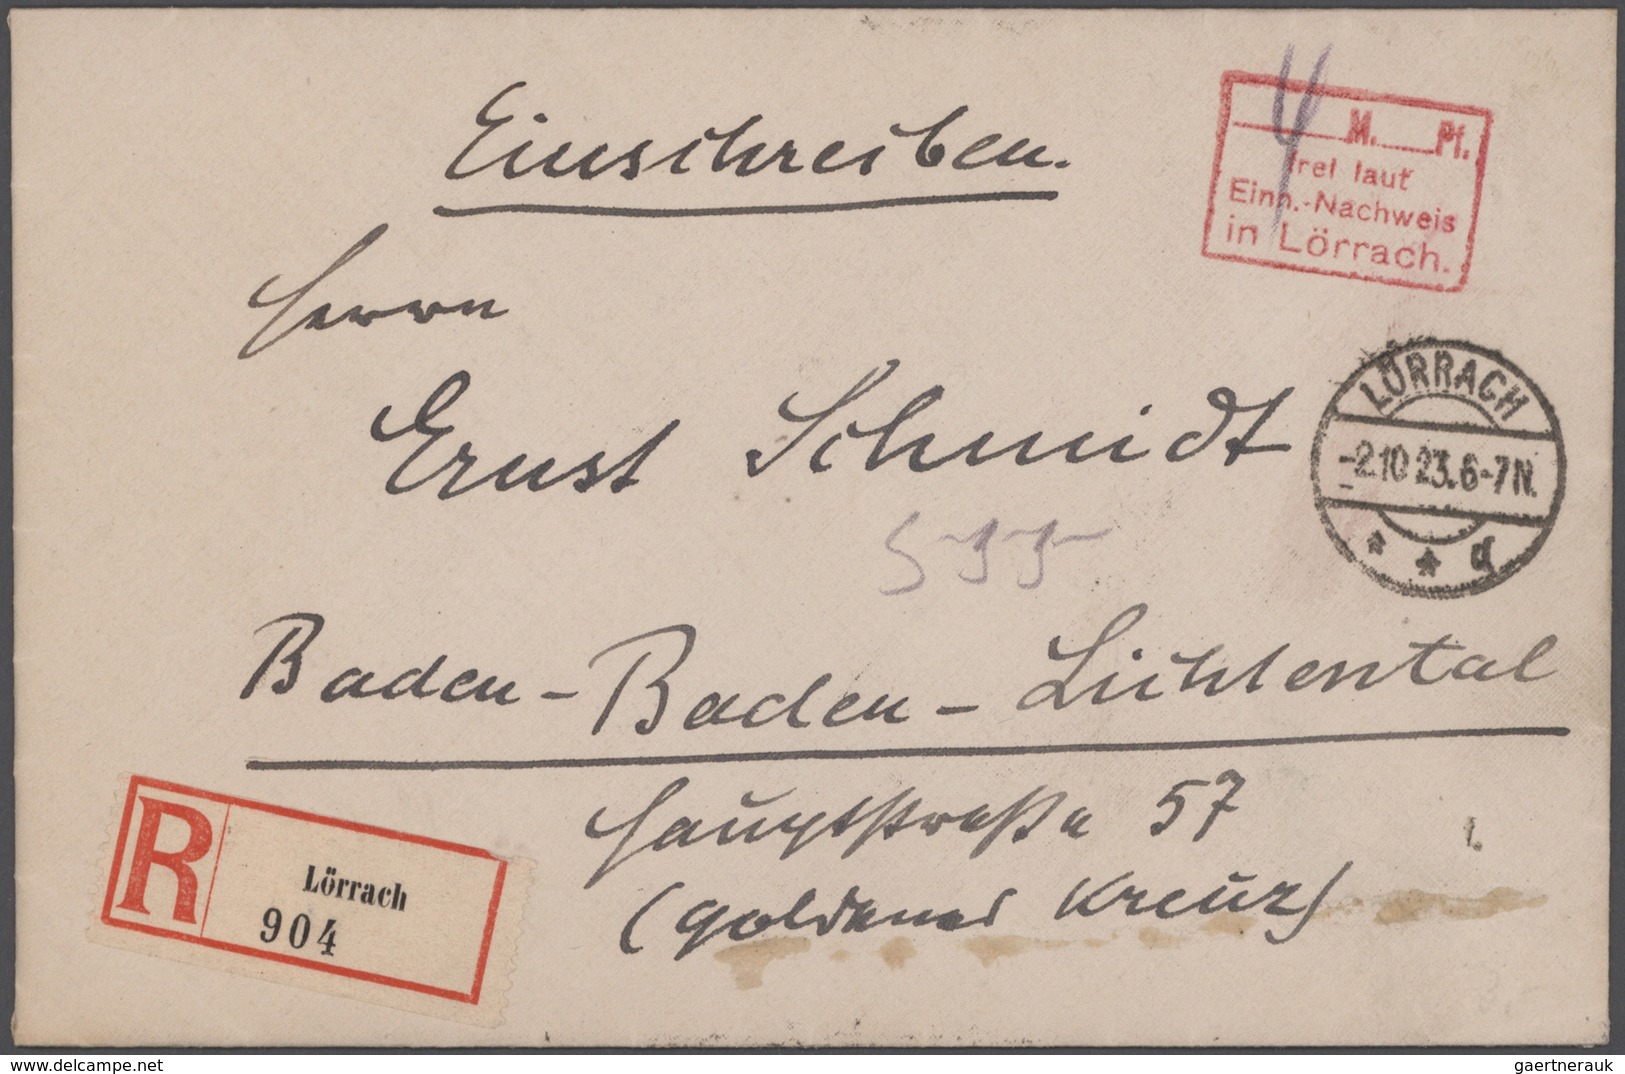 Einschreiben.
4
M. Pf.
frei laut
Einn.-Nachweis
in Lörrach.
Herrn
Ernst Schmidt
LÖRRACH
-2.10 23. 6-7 N.
* * d
Baden-Baden-Lichtental
Hauptstraße 57
(goldenes Kreuz)
R
Lörrach
904
www.delcampe.net
gaertnerauk